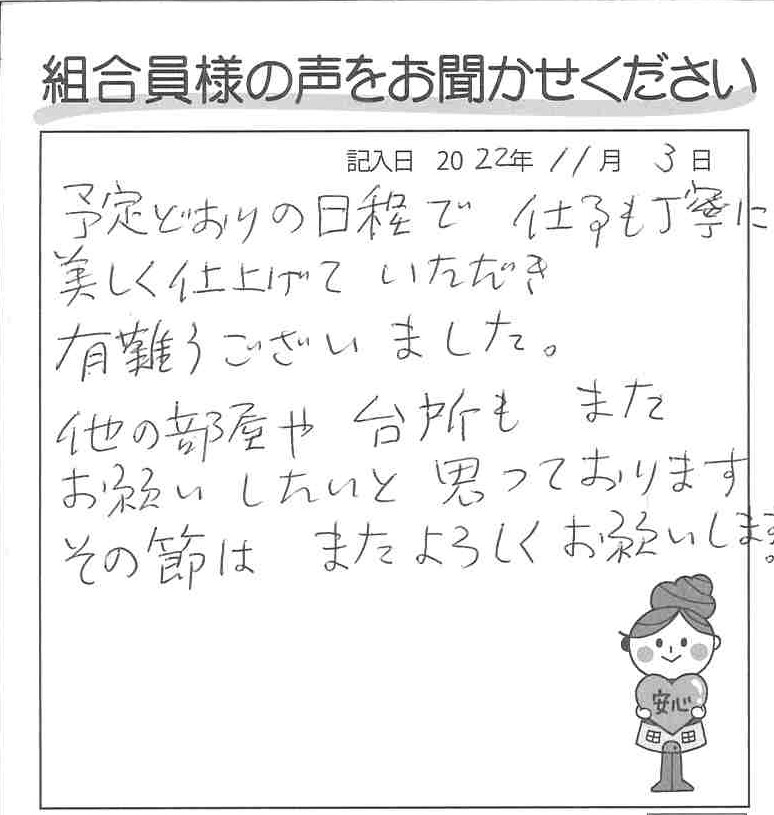 組合員様の声をお聞かせください
記入日 2022年 11月 3日
予定どおりの日程で 仕事も丁寧に
美しく仕上げて いただき
有難うございました。
他の部屋や 台所も また
お願い したいと 思っております
その節は またよろしくお願いします。
安心